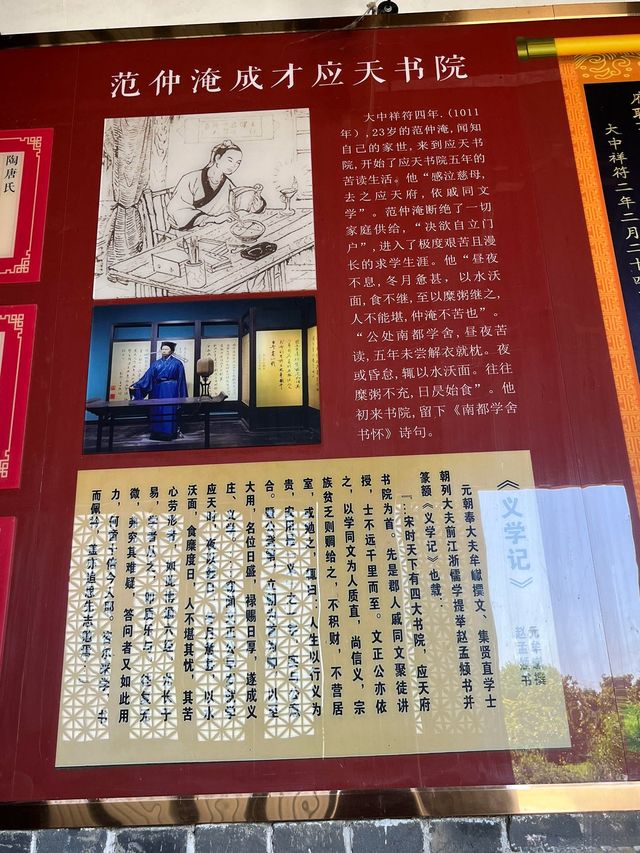 范仲淹成才应天书院
大中祥符四年.(1011
年),23岁的范仲淹,闻知
自己的家世,来到应天书
院,开始了应天书院五年的
苦读生活。他“感泣慈母,
去之应天府,依戚同文
学”。范仲淹断绝了一切
家庭供给,“决欲自立门
户”,进入了极度艰苦且漫
长的求学生涯。他“昼夜
不息,冬月惫甚,以水沃
面,食不继,至以糜粥继之,
人不能堪,仲淹不苦也”。
“公处南都学舍,昼夜苦
读,五年未尝解衣就枕。夜
或昏怠,辄以水沃面。往往
糜粥不充,日昃始食”。他
初来书院,留下《南都学舍
书怀》诗句。
陶唐氏
大中祥符二年二月二十四
《义学记》
元牟巘撰
赵孟頫书
元朝奉大夫牟巘撰文、集贤直学士
朝列大夫前江浙儒学提举赵孟頫书并
篆额《义学记》也载:
“…宋时天下有四大书院,应天府
书院为首。先是郡人戚同文聚徒讲
授,士不远千里而至。文正公亦依
之,以学同文为人质直,尚信义,宗
族贫乏则赒给之,不积财,不营居
室,或勉之,辄曰:人生以行义为
贵,
合。
大用,名位日盛,禄赐日享,遂成义
庄、义学。
应天时,
沃面,食糜度日,人不堪其忧,其苦
心劳形
易,学者从之,
微,兼穷其难疑,答问者又如此用
力,
而佩